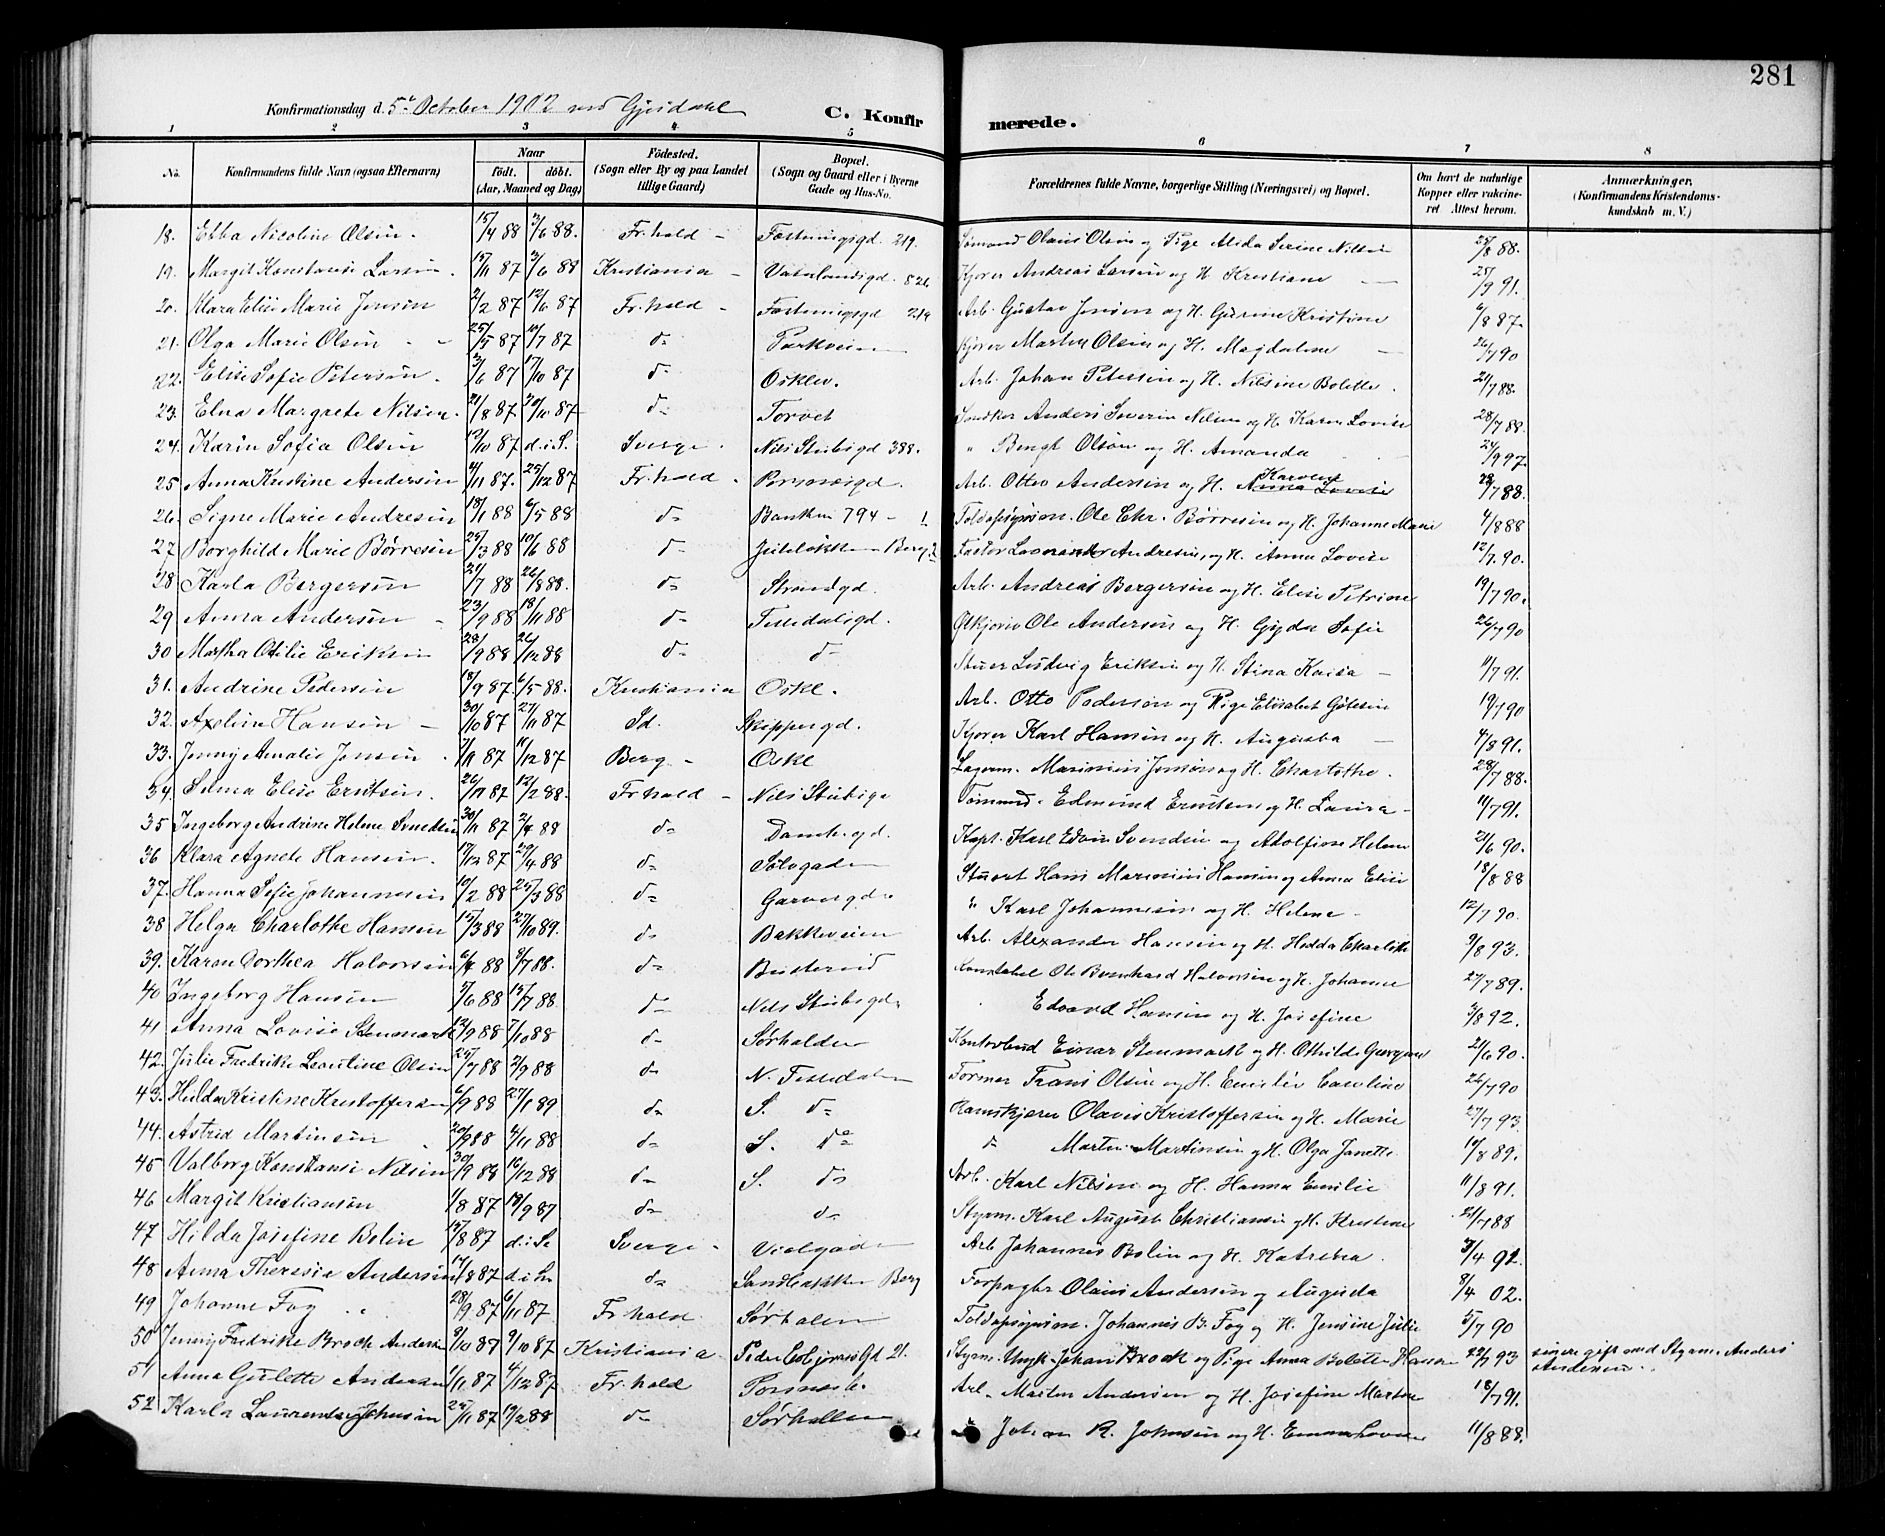 281
Konfirmationsdag d. 5te October 1902 ved Gjesdahl
C. Konfirmerede.
1 2 3 4 5 6 7 8
No. Konfirmandens fulde Navn (ogsaa Efternavn) Naar født. døbt. (Aar, Maaned og Dag) Fødested. (Sogn eller By og paa Landet tillige Gaard) Bopæl. (Sogn og Gaard eller i Byerne Gade og Hus-No. Forældrenes fulde Navne, borgerlige Stilling (Næringsvei) og Bopæl. Om havt de naturlige Kopper eller vakcineret Attest herom. Anmærkninger. (Konfirmandens Kristendomskundskab m. V.)
18. Ebba Nicoline Olsen. 15/4 88 3/6 88. Fr.hald - Fæstningsgd. 219. Sømand Olaus Olsen og Pige Alida Serine Nilsen 25/8 88.
19. Margit Konstanse Larsen. 15/11 87 3/6 88 Kristiania - Vaterlandsgd. 826 Kjører Andreas Larsen og H. Kristiane 25/9 91.
20. Klara Elise Marie Jensen 2/2 87 12/6 87 Fr.hald - Fæstningsgd 219 Arb. Gustav Jensen og H. Gurine Kristine 6/8 87.
21. Olga Marie Olsen 25/5 87 10/7 87 do Parkveien Kjører Martin Olsen og H. Magdalene 26/7 90
22. Elise Sofie Petersen. 3/6 87 17/10 87 do Osklev. Arb. Johan Petersen og H. Nilsine Bolette. 21/7 88.
23. Elna Margrete Nilsen. 21/8 87 30/10 87 do Torvet Anders Severin Nilsen og H. Karen Lovise 28/7 88.
24. Karin Sofia Olsen 12/10 87 d.i.S. Sverge. Nils Stubsgd 388. " Bengt Olson og H. Amanda 24/9 97.
25 Anna Kristine Andersen 4/11 87. 25/12 87 Fr.hald. Arb. Otto Andersen og H. Karoline Anna Lovise 23/7 88.
26. Signe Marie Andresen 18/1 88 6/5 88 do Banken 794 - 1 Toldopsynsm. Ole Chr. Børresen og H. Johanne Marie 4/8 88
27 Borghild Marie Børresen 25/3 88 10/6 88 do Jeileløkken Berg Factor Andresen, og H. Anna Lovise 12/7 90.
28. Karla Bergersen 21/7 88 26/8 88. do Strandgd. Arb. Andreas Bergersen og H. Elise Petrine 19/7 90.
29 Anna Andersen 23/9 88 18/11 88 do Tistedalsgd. Ølkjører Ole Andersen og H. Gyda Sofie 26/7 90
30 Martha Otilie Eriksen 28/9 88 26/12 88 do do Stuer Ludvig Eriksen og H. Stina Kaisa - 11/7 91.
31. Andrine Pedersen 18/9 87. 6/5 88. Kristiania Oskl. Arb. Otto Pederson og Pige Elisabet Götesen 19/7 90
32. Axeline Hansen - 30/10 87 27/11 87 Id. Skippergd. Kjører Karl Hansen og H. Augusta 4/8 91.
33. Jenny Amalie Jensen 7/11 87 11/12 87 Berg - Oskl Lagerm. Marinius Jensen og H. Charlotte. 28/7 88.
34. Selma Elise Erntsen. 26/11 87 12/2 88. Fr.hald - Nils Stubsga Tømmerd. Edmund Erntsen og H. Laura - 11/7 91.
35 Ingeborg Andrine Helene Svendsen 30/11 87 2/4 88 do Damhsgd. Kapt. Karl Edvin Svendsen og Adolfine Helene 21/6 90.
36 Klara Agnete Hansen. 17/12 87 29/4 88 do Sølvgaden Stuert Hans Marinius Hansen og Anna Elise 18/8 88
37. Hanna Sofie Johannesen 10/2 88 25/3 88 do Garvergd. " Karl Johannesen og H. Helene - 12/7 90.
38 Helga Charlothe Hansen 15/3 88 27/10 89. do Bakkeveien Arb. Alexander Hansen og H. Hedda Charlotte 9/8 93.
39. Karen Dorthea Halvorsen 6/4 88 8/7 88. do Busterud Konstabel Ole Bernhard Halvorsen og H. Johanne 27/7 89.
40 Ingeborg Hansen 3/6 88 15/7 88. do Nils Stubsgd. Edvard Hansen og H. Josefine 3/8 92.
41 Anna Lovise Stenmark 12/9 88 7/10 88 do Sørhalden Kontorbud Einar Stenmark og H. Othilde Georgine 21/6 90.
42. Julie Fredrikke Leontine Olsen 25/7 88 2/9 88 do N. Tistedalen Former Frans Olsen og H. Emilie Caroline 26/7 90
43. Hilda Kristine Kristoffersen 6/9 88 27/1 89 do S. do Ramskjører Olavis Kristoffersen og H. Marie 27/7 93.
44. Astrid Martinsen 20/9 88 4/11 88 do S. do do Martin Martinsen og H. Olga Janette. 11/8 89.
45 Valborg Konstanse Nilsen 30/9 88 16/12 88 do S. do Arb. Karl Nilsen og H. Hanna Emilie 11/8 91.
46 Margit Kristiansen 1/8 87 18/9 87 do do Styrm. Karl August Christiansen og H. Kristine 21/7 88
47 Hilda Josefine Bolin 15/8 87 d.i.S. Sverge - Violgaden Arb Johannes Bolin og H. Katrina. 3/4 92.
48 Anna Theresia Andersen 17/8 87 d.i.S. do Sandbakken Berg Forpagter Olaus Andersen og Augusta 8/4 02.
49 Johanne Fog 28/9 87 6/11 87 Fr.hald. Sørhalden Toldopsynsm. Johannes B. Fog og H. Jensine Julie 5/7 90
50 Jenny Fredrikke Brock Andersen 9/10 87 9/10 87 Kristiania Peder Colbjørnsens Gd 21. Styrm. Ungk. Johan Brock og Pige Anna Bolette Hansen 29/7 93 gift med Styrm. Anders Andersen.
51 Anna Gulette Andersen 1/11 87 4/12 87 Fr.hald Arb. Martin Andersen og H. Josefine Martine 18/7 91.
52 Karla Laurentze Johnsen 25/11 87 19/2 88 do Sørhalden Johan R. Johnsen og H. Emma Lovise 11/8 88.